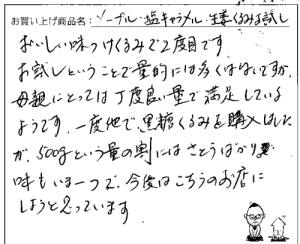 お買い上げ商品名：メープル・塩キャラメル・生姜くるみお試し
おいしい味つけくるみで2度目です
お試しということで量的には多くはないですが、
母親にとっては丁度良い量で満足している
ようです。一度他で、黒糖くるみを購入しました
が、500gという量の割にはさとうばかりで
味もいま一つで、今後はこちらのお店に
しようと思っています